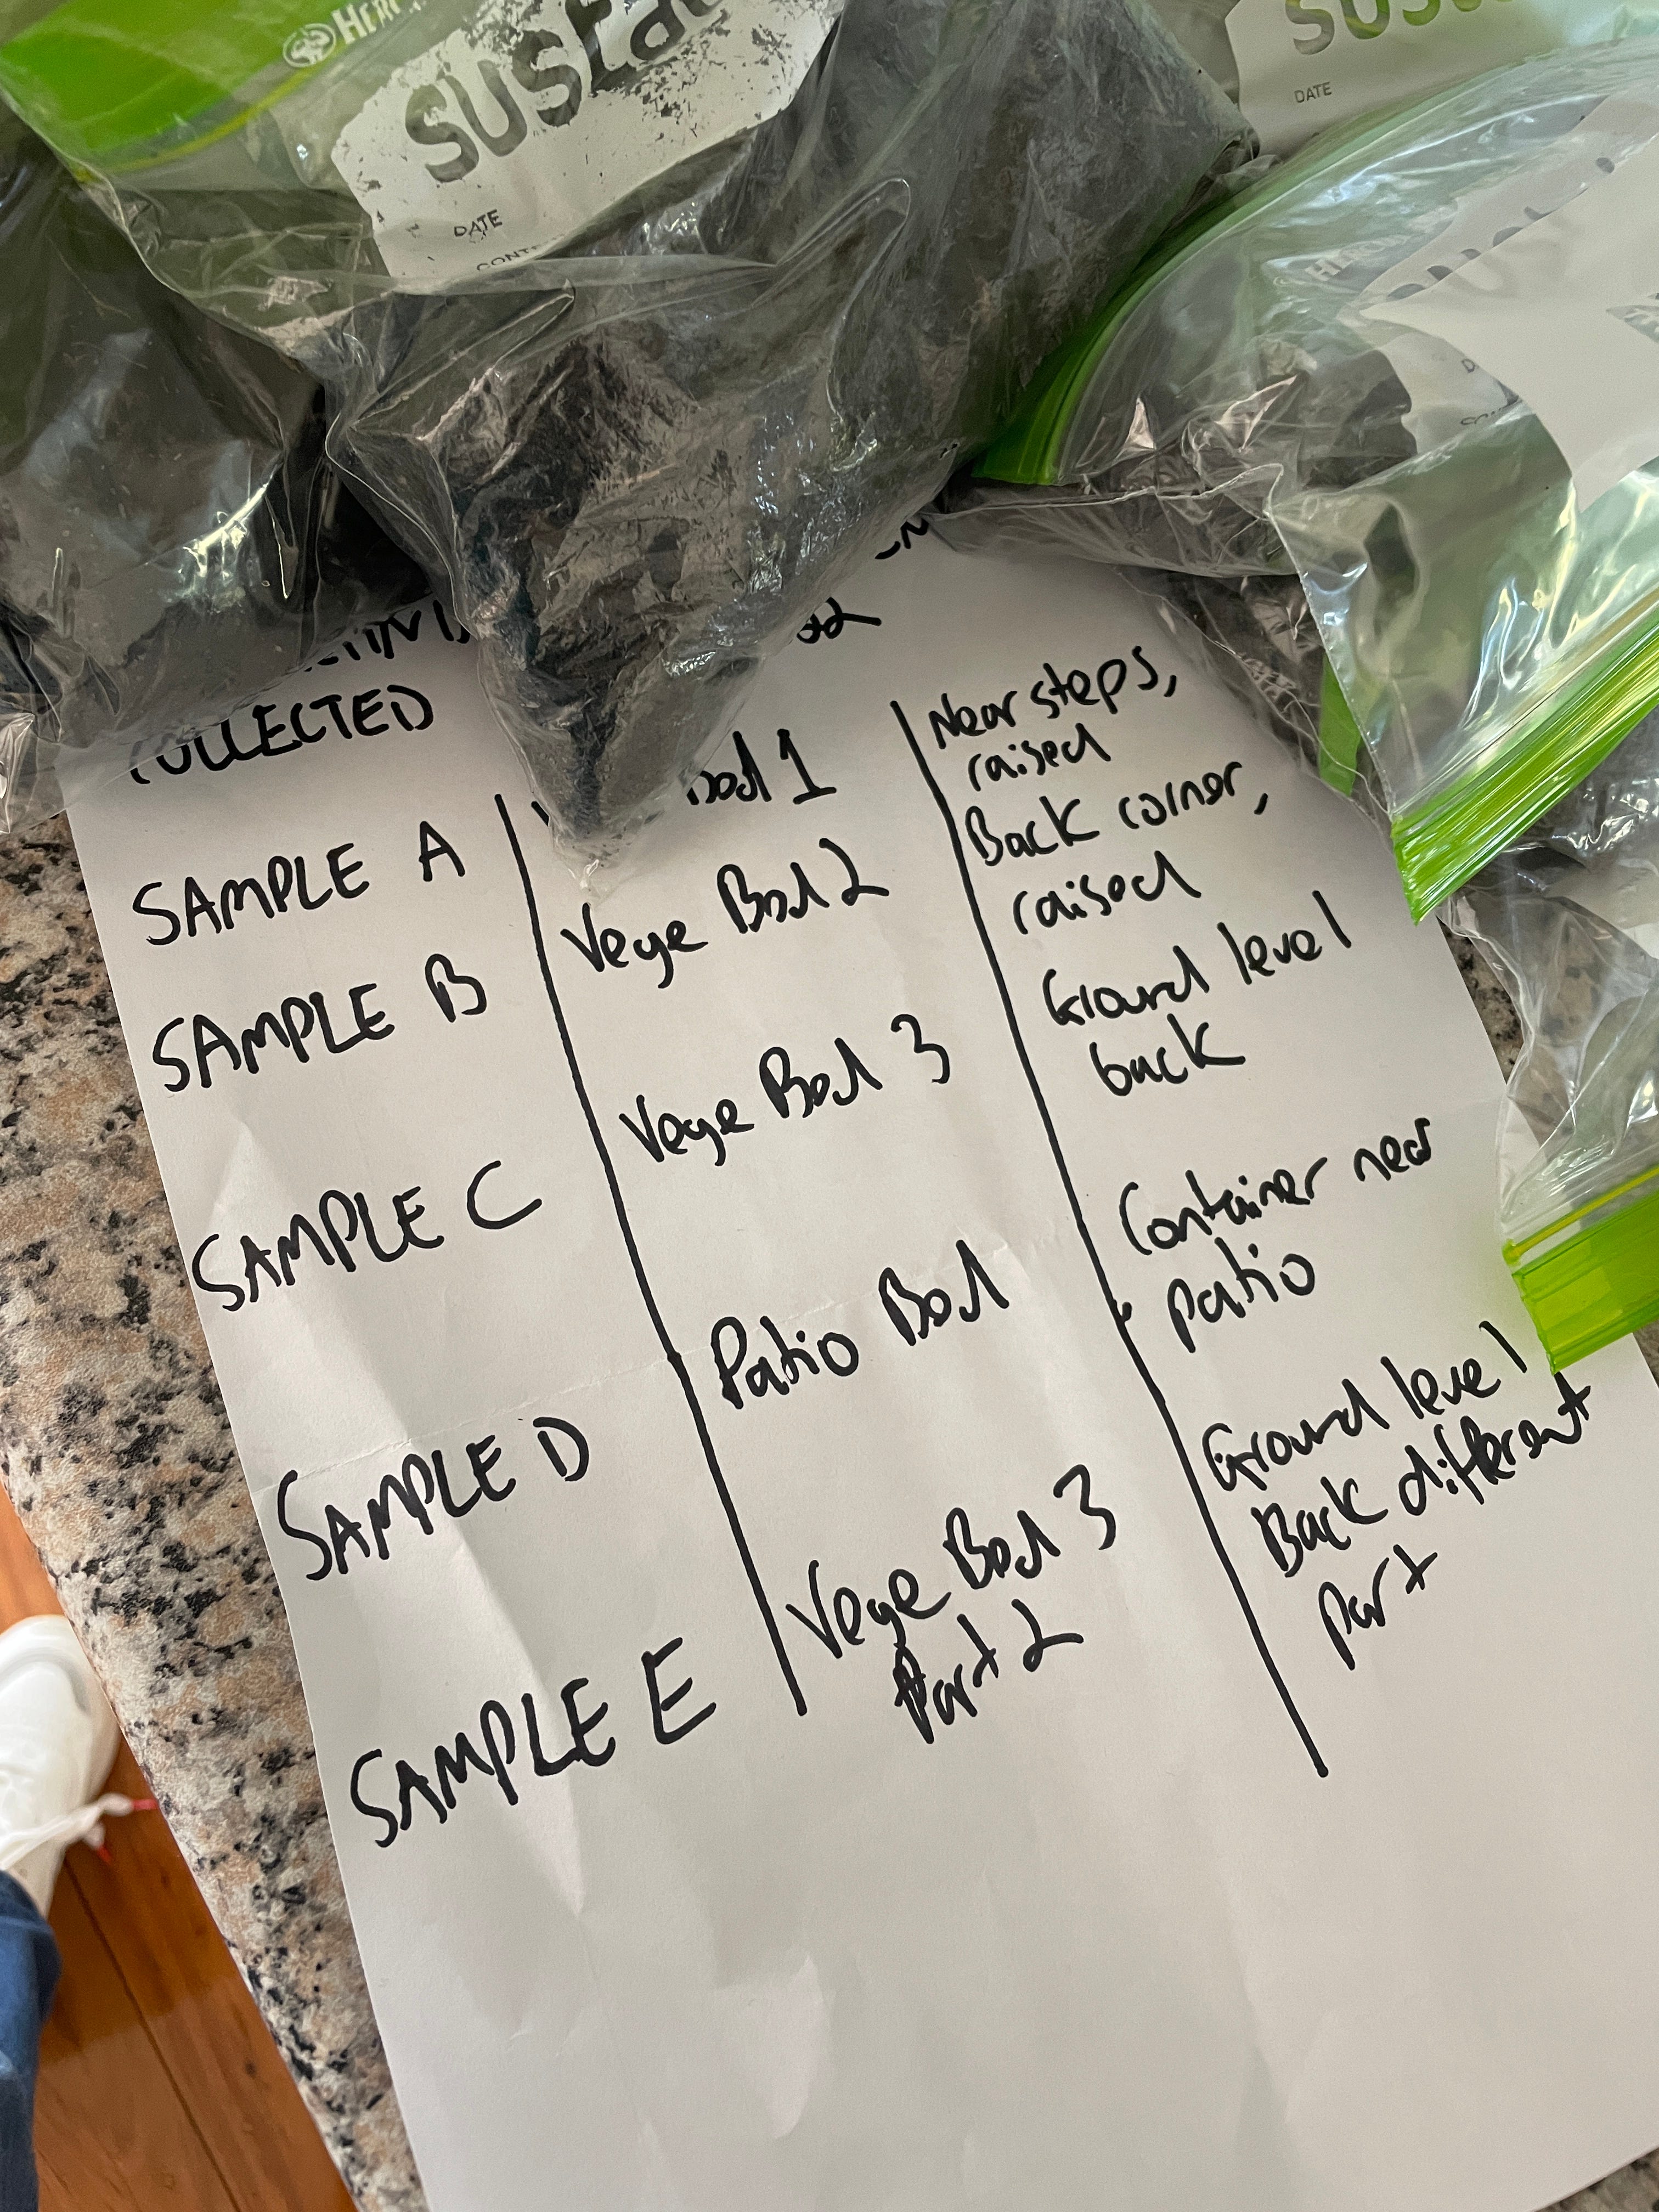 SUSta
DATE
DATE
COLLECTED
Bed 1
Near steps,
raised
SAMPLE A
Vege Bed 2
Back corner,
raised
SAMPLE B
Vege Bed 3
Ground level
back
SAMPLE C
Patio Bed
Container near
patio
SAMPLE D
Vege Bed 3
Part 2
Ground level
Back different
part
SAMPLE E